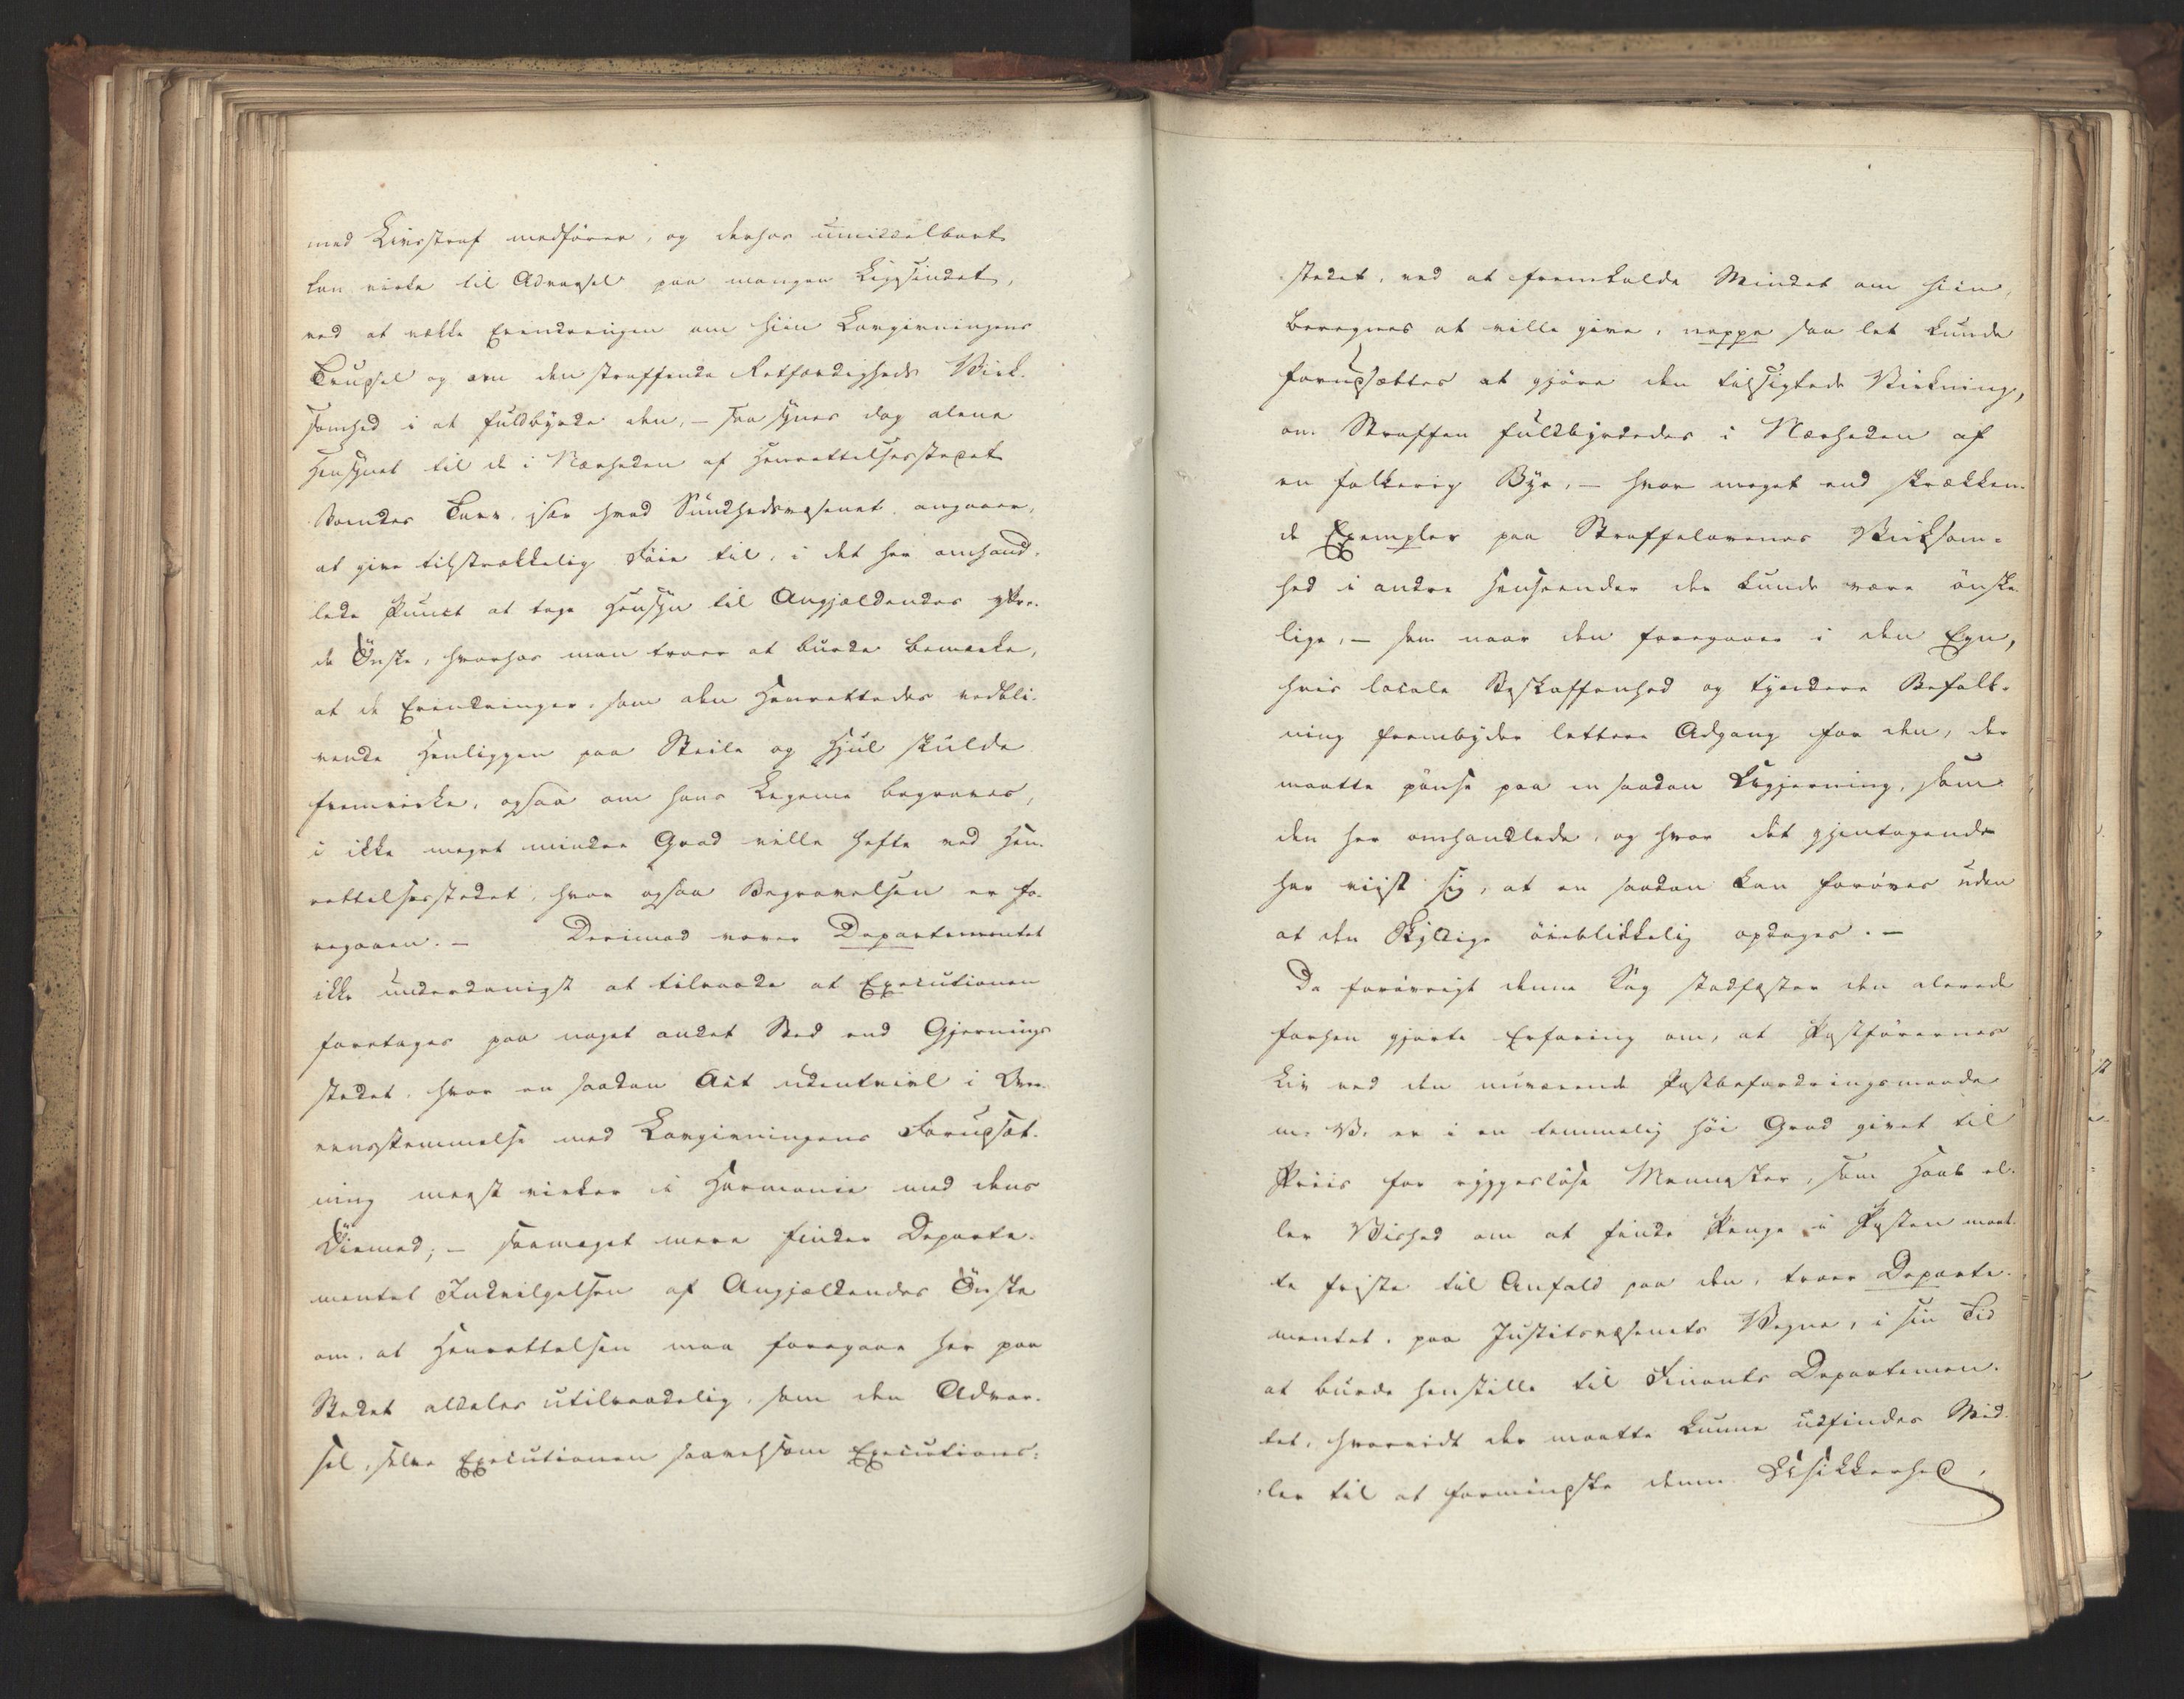 med Livsstraf medfører, og derhos umiddelbart
kan virke til Advarsel paa mangen Ligesindet,
ved at vække Erindringen om hiin Lovgivningens
Trudsel og om den straffende Retfærdigheds Virk-
somhed i at fuldbyrde den, – saa synes dog alene
Hensynet til de i Nærheden af Henrettelsesstedet
Boendes Tarv, især hvad Sundhedsvæsenet angaaer,
at give tilstrækkelig Føie til, i det her omhand-
lede Punct at tage Hensyn til Angjældendes yttre-
de Ønske, hvorhos man troer at burde bemærke,
at de Erindringer, som den Henrettedes vedbli-
vende Henliggen paa Steile og Hjul skulde
fremvirke, ogsaa om hans Legeme begraves,
i ikke meget mindre Grad ville hefte ved Hen-
rettelsesstedet, hvor ogsaa Begravelsen er fo-
regaaen. – Derimod vover Departementet
ikke underdanigst at tilraade at Executionen
foretages paa noget andet Sted end Gjernings-
stedet, hvor en saadan Act udentvivl i Over-
eensstemmelse med Lovgivningens Forudsæt-
ning meest virker i Harmonie med dens
Øiemed; – saameget mere finder Departe-
mentet Indvilgelsen af Angjældendes Ønske
om, at Henrettelsen maa foregaae her paa
Stedet aldeles utilraadelig, som den Advar-
sel, selve Executionen saavelsom Executions-
stedet, ved at fremkalde Mindet om hiin,
beregnes at ville give, neppe saa let kunde
forudsættes at gjøre den tilsigtede Virkning,
om Straffen fuldbyrdedes i Nærheden af
en folkerig Bye, – hvor meget end skrækken-
de Exempler paa Straffelovenes Virksom-
hed i andre Henseender der kunde være ønske-
lige, – som naar den foregaaer i den Egn,
hvis locale Beskaffenhed og tyndere Befolk-
ning frembyder lettere Adgang for den, der
maatte pønse paa en saadan Ugjerning, som
den her omhandlede, og hvor det gjentagende
har viist sig, at en saadan kan forøves uden
at den Skyldige øieblikkelig opdages. –
Da forøvrigt denne Sag stadfæster den alerede
forhen gjorte Erfaring om, at Postførernes
Liv ved den nuværende Postbefordringsmaade
m. V. er i en temmelig høi Grad givet til
Priis for ryggesløse Mennesker, som Haab el-
ler Vished om at finde Penge i Posten maat-
te friste til Anfald paa den, troer Departe-
mentet, paa Justitsvæsenets Vegne, i sin Tid
at burde henstille til Finants Departemen-
tet, hvorvidt der maatte kunne udfindes Mid-
ler til at formindske denne Usikkerhed,